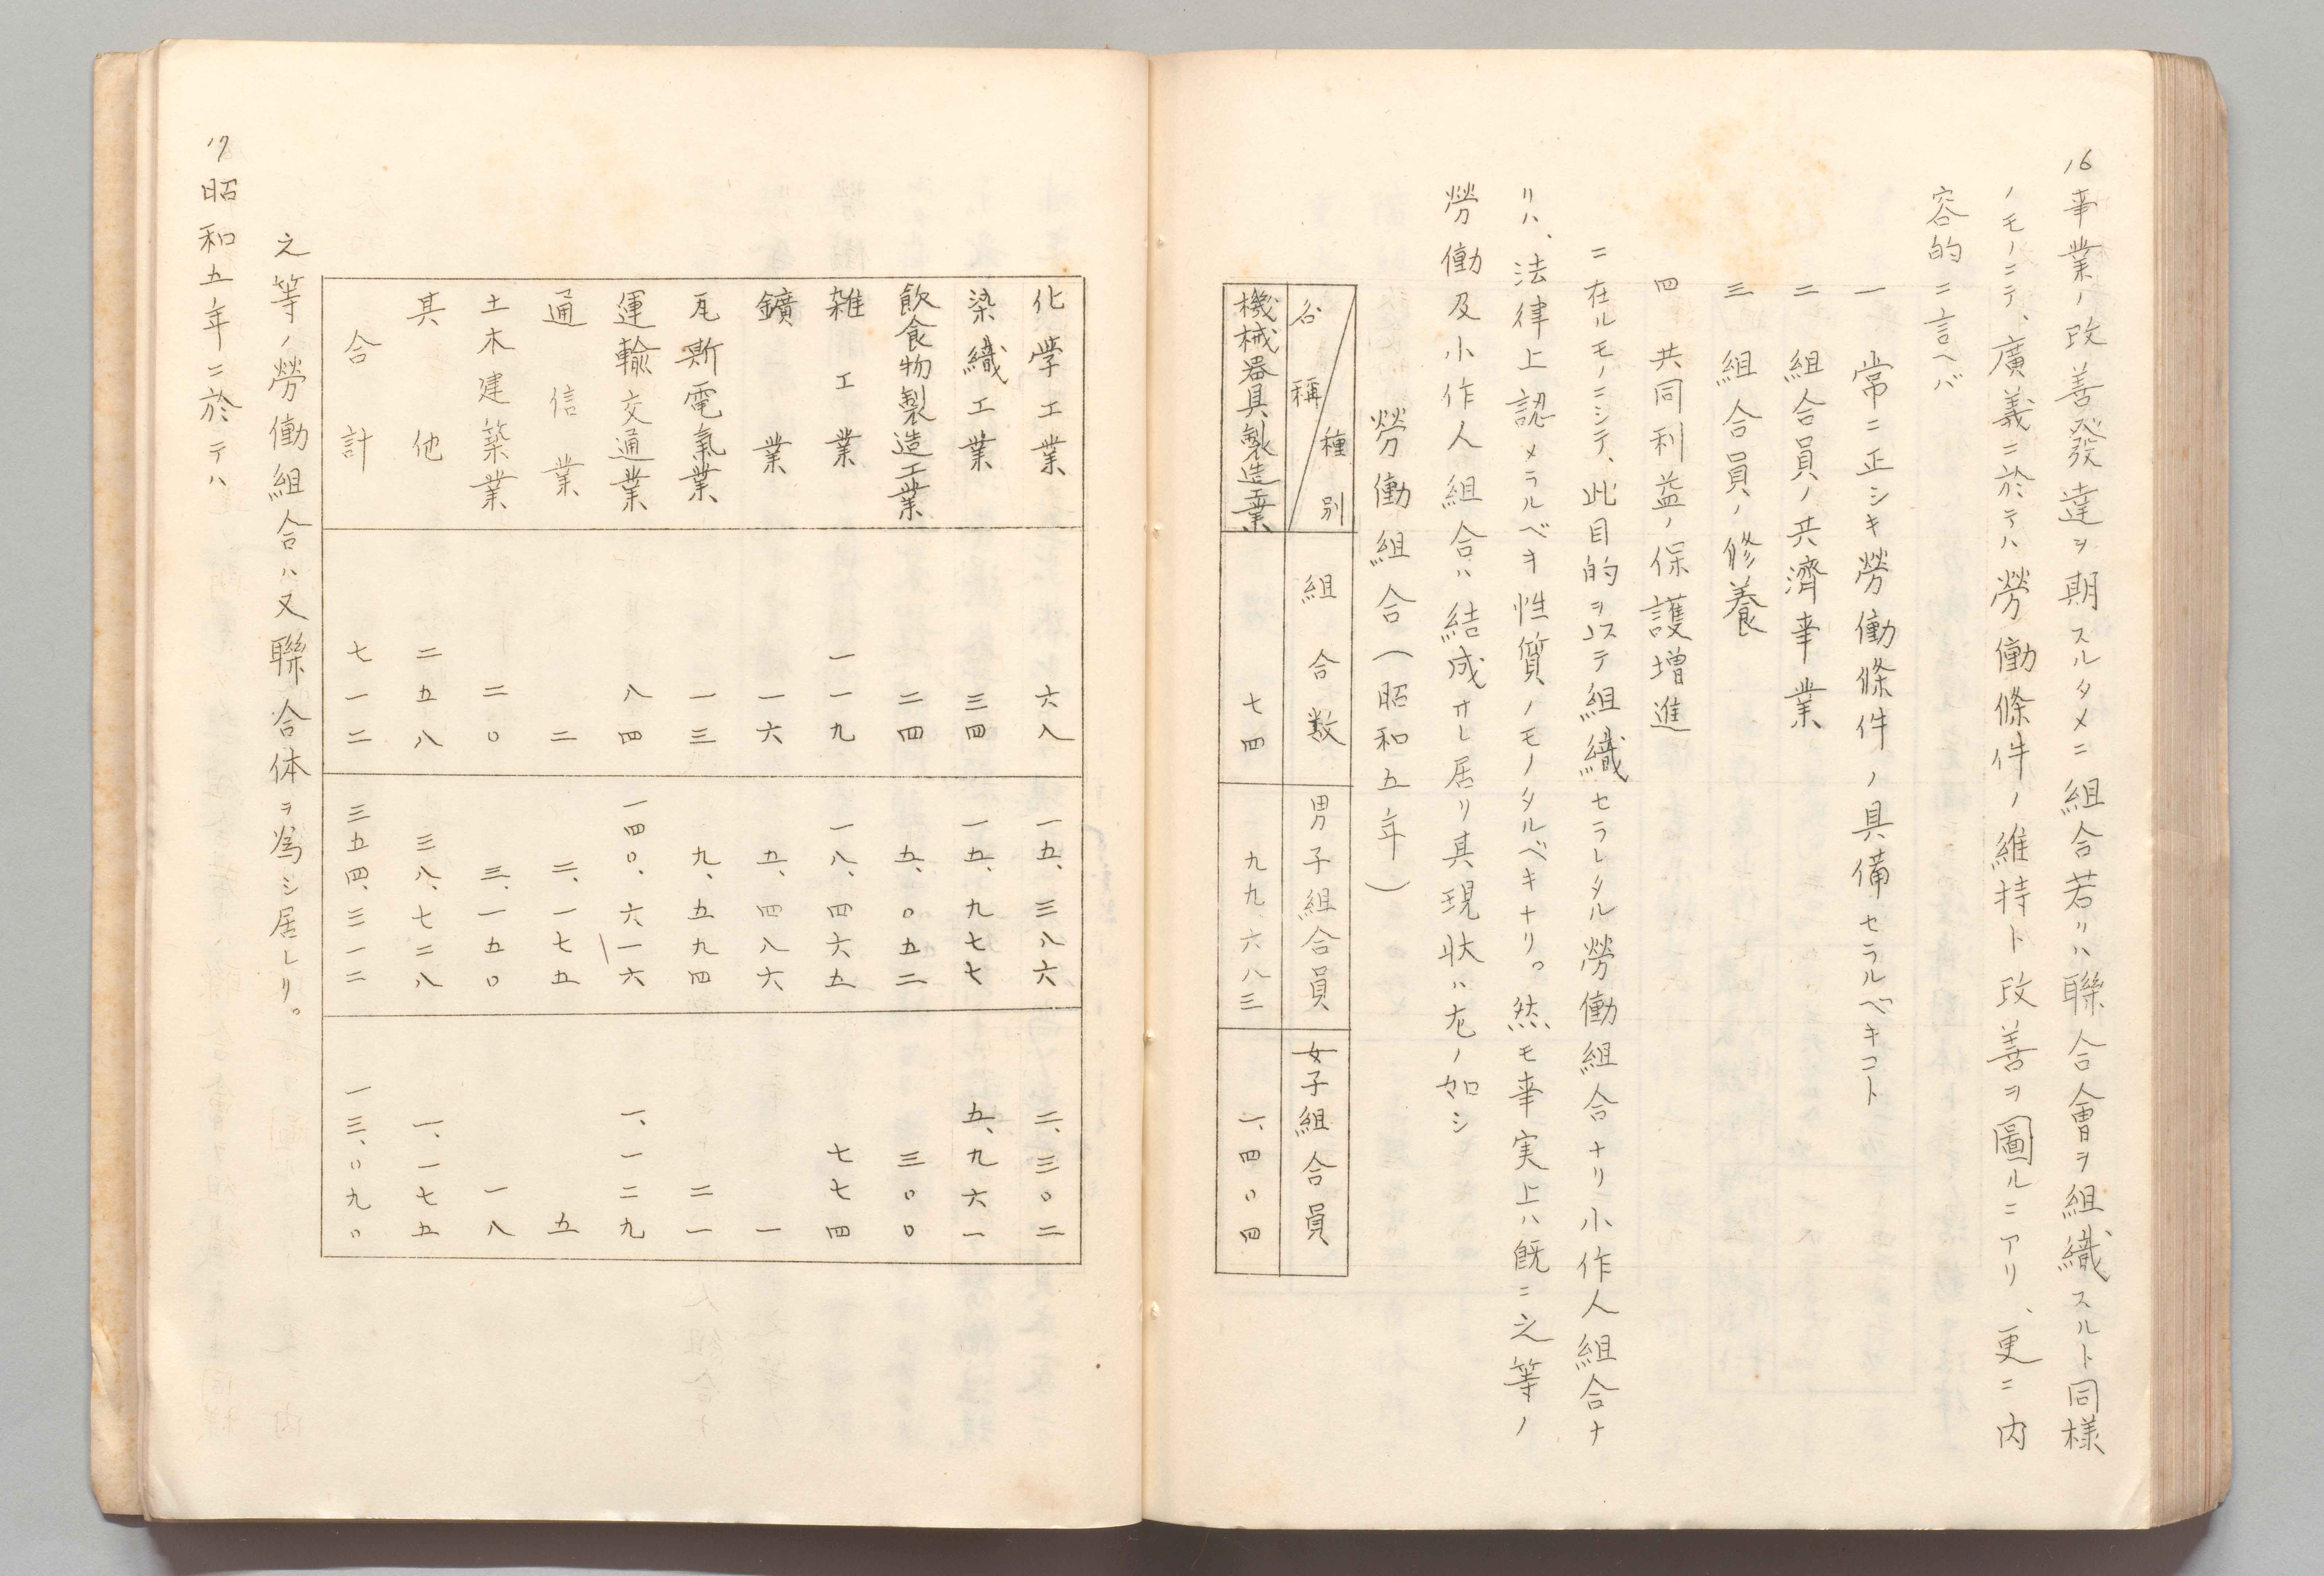 16
事業ノ改善發達ヲ期スルタメニ組合若リハ聯合會ヲ組織スルト同様
ノモノニテ、廣義ニ於テハ勞働條件ノ維持ト改善ヲ圖ルニアリ、更ニ内
容的ニ言ヘバ
一 常ニ正シキ勞働條件ノ具備セラルベキコト
二 組合員ノ共濟事業
三 組合員ノ修養
四 共同利益ノ保護増進
ニ在ルモノニシテ、此目的ヲ以テ組織セラレタル勞働組合ナリ小作人組合ナ
リハ、法律上認メラルベキ性質ノモノタルベキナリ。然モ事実上ハ既ニ之等ノ
勞働及小作人組合ハ結成サレ居リ其現状ハ左ノ如シ
勞働組合(昭和五年)
名稱 種別 組合数 男子組合員 女子組合員
機械器具製造業 七四 九九、六八三 一、四〇四
化学工業 六八 一五、三八六 二、三〇二
染織工業 三四 一五、九七七 五、九六一
飲食物製造工業 二四 五、〇五二 三〇〇
雑工業 一一九 一八、四六五 七七四
鑛業 一六 五、四八六 一
瓦斯電氣業 一三 九、五九四 二一
運輸交通業 八四 一四〇、六一六 一、一二九
通信業 二 二、一七五 五
土木建築業 二〇 三、一五〇 一八
其他 二五八 三八、七二八 一、一七五
合計 七一二 三五四、三一二 一三、〇九〇
之等ノ勞働組合ハ又聯合体ヲ為シ居レリ。
17
昭和五年ニ於テハ